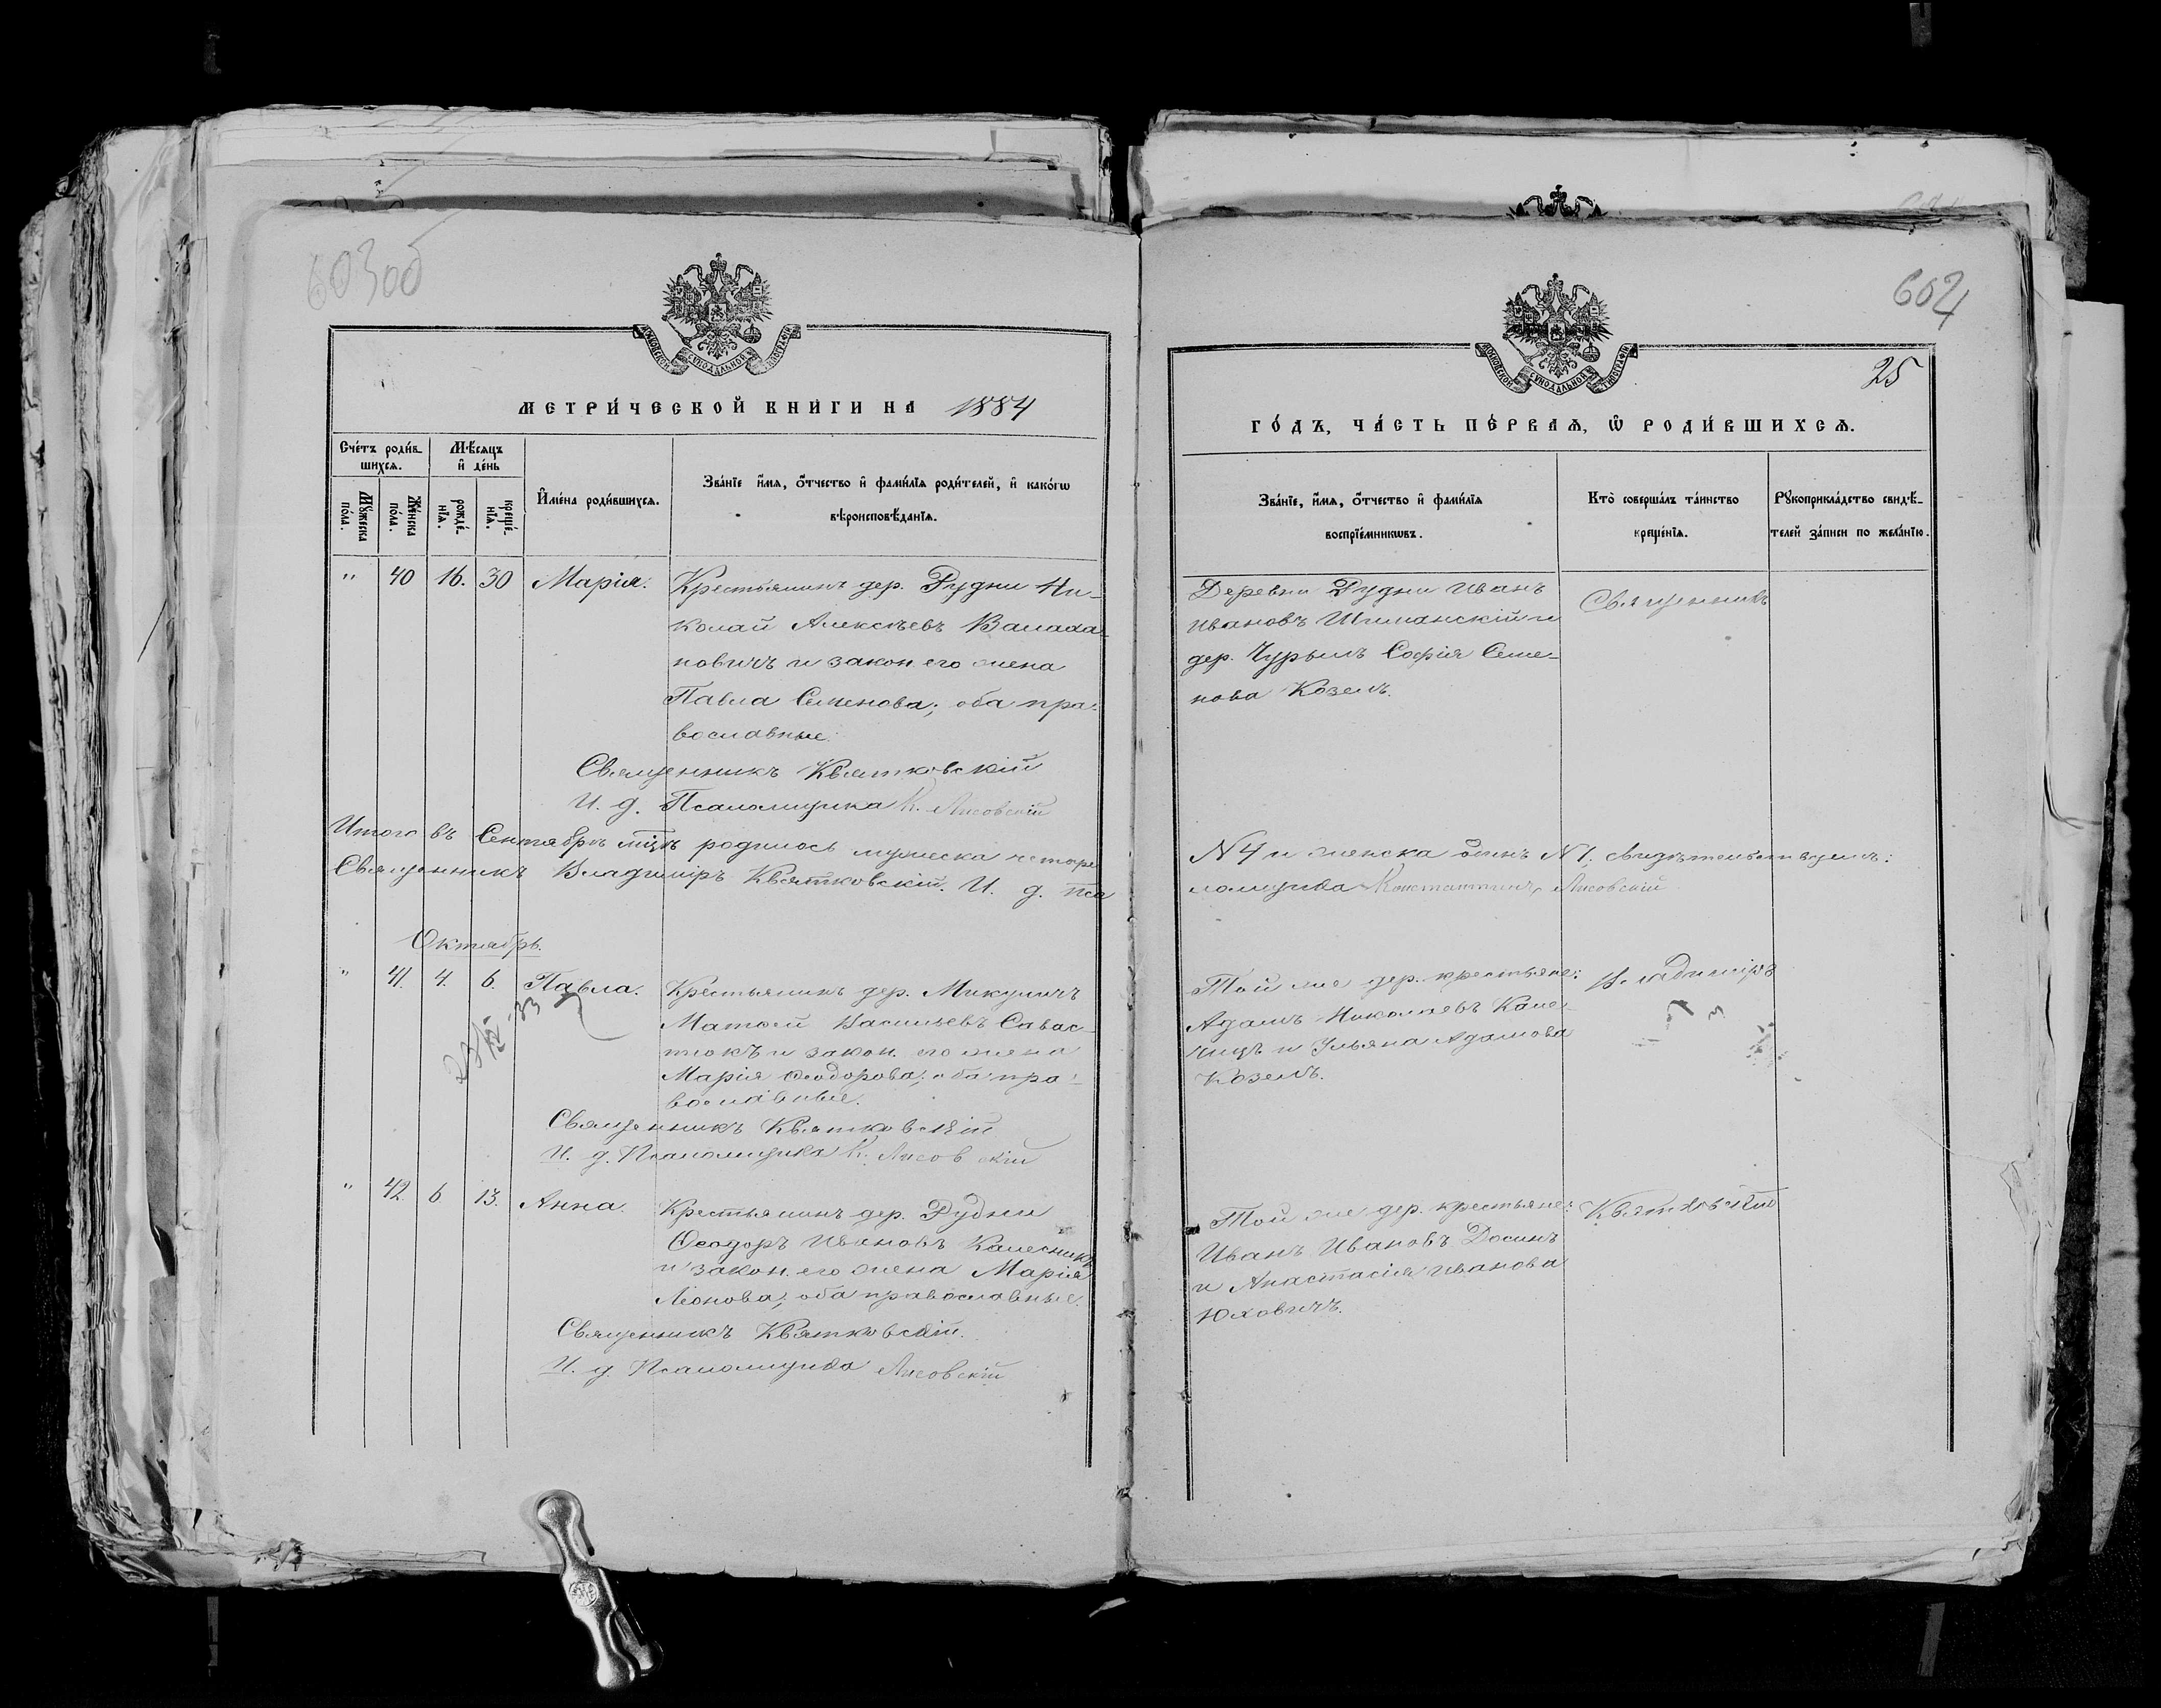 603об
МЕТРИ́ЧЕСКОЙ КНИ́ГИ НА 1884
Сче́тъ роди́в-
шихся.
Мѣ́сяцъ
и҆ де́нь
Мꙋ́жеска
по́ла.
Же́нска
по́ла.
рожде́-
нїѧ.
креще́-
нїѧ.
И҆мена̀ роди́вшихсѧ.
Зва́нїе и҆́мѧ, ѻ҆́тчество и҆ фами́лїѧ роди́телей, и҆ како́гѡ
вѣроисповѣ́данїѧ.
" 40 16. 30 Марія.
Крестьянинъ дер. Рудни Ни-
колай Алексѣевъ
новичъ и закон. его жена
Павла Семенова; оба пра-
вославные.
Священникъ Квятковскій
И. д. Псаломщика К. Лисовскій
Итого въ Сентябрѣ мцѣ родилось мужеска четыре
Священникъ Владиміръ Квятковскій. И. д. Пса
Октябрь.
" 41. 4. 6. Павла.
Крестьянинъ дер. Микуличъ
Матѳей Васильевъ Савас-
тюкъ и закон. его жена
Марія Ѳеодорова; оба пра-
вославные.
Священникъ Квятковскій
И. д. Псаломщика К. Лисовскій
" 42. 6 13. Анна.
Крестьянинъ дер. Рудни
Ѳеодоръ Ивановъ Калесникъ
и закон. его жена Марія
Леонова; оба православные.
Священникъ Квятковскій.
И. д. Псаломщика Лисовскій
604
25
МОСКОВСКОЙ СѴНОДАЛЬНОЙ ТИПОГРАФІИ
ГО́ДЪ, ЧА́СТЬ ПЕ́РВАѦ, Ѡ҆ РОДИ́ВШИХСѦ.
Зва́нїе, и҆́мѧ, ѻ҆́тчество и҆ фами́лїѧ
воспрїе́мникѡвъ.
Кто̀ соверша́лъ та́инство
креще́нїѧ.
Рꙋкоприкла́дство свидѣ́-
телей за́писи по жела́нїю.
Деревни Рудни Иванъ
Ивановъ Шиманскій и
дер. Чурылъ Софія Семе-
нова Козелъ.
Священникъ
N 4 и женска одинъ N 1; свидѣтельствуемъ:
ломщика Константинъ Лисовскій
Той же дер. крестьяне:
Адамъ Николаевъ
и Ульяна Адамова
Козелъ.
Владиміръ
Той же дер. крестьяне:
Иванъ Ивановъ Досинъ
и Анастасія Иванова
Юховичъ.
Квятковскій